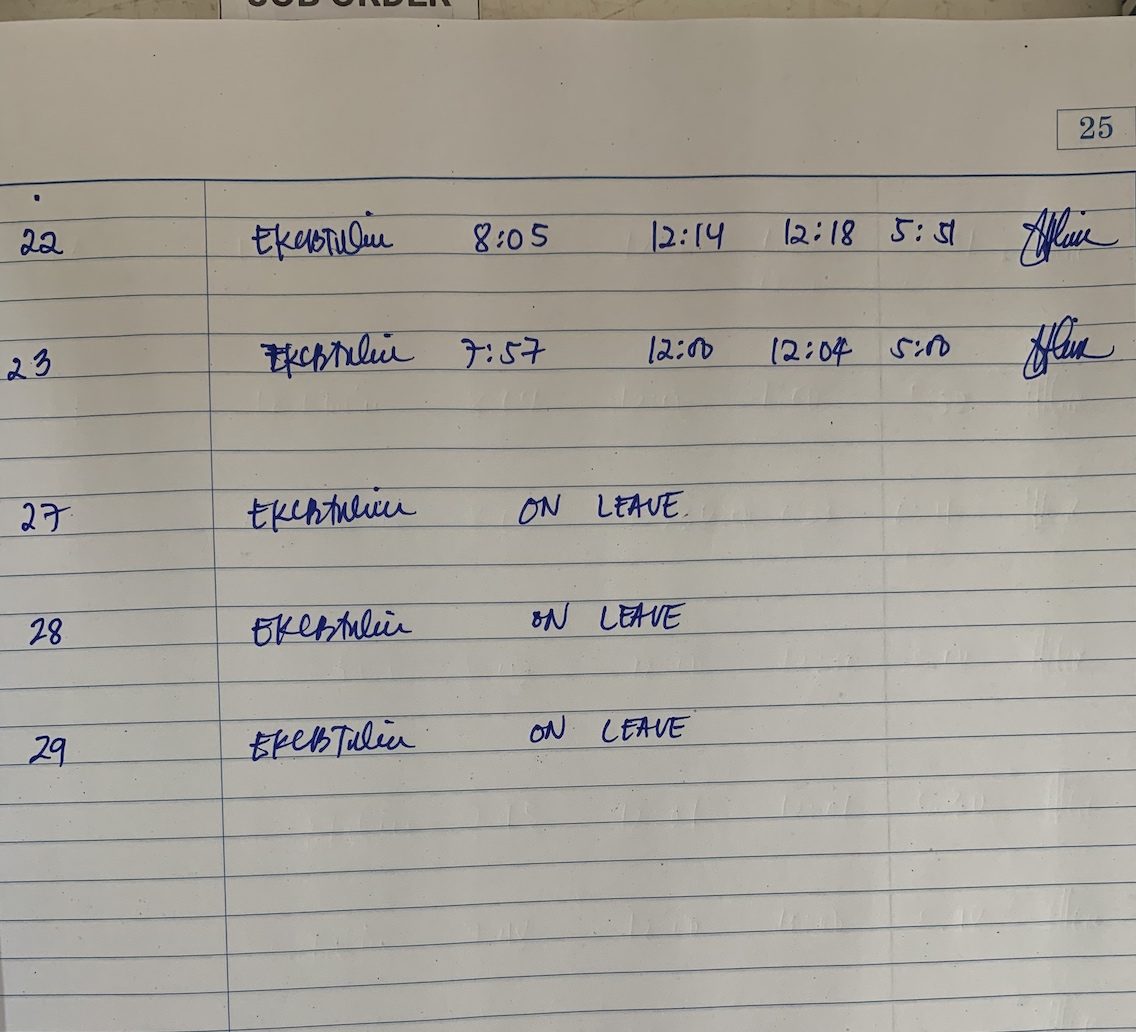 JOB ORDER
25
22 EKCBTulin 8:05 12:14 12:18 5:51
23 EKCBTulin 7:57 12:00 12:04 5:00
27 EKCBTulin ON LEAVE.
28 EKCBTulin ON LEAVE
29 EKCBTulin ON LEAVE